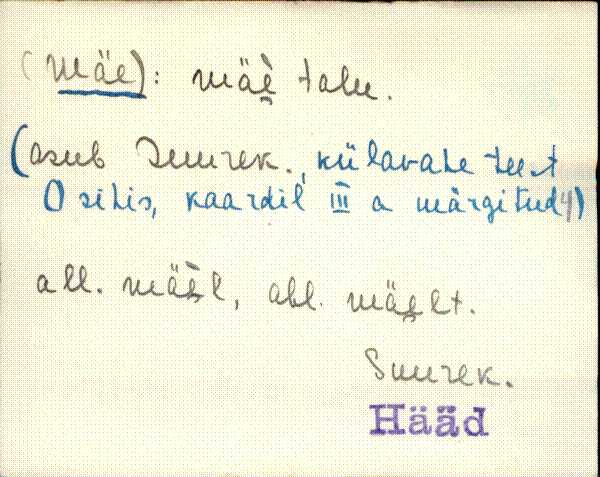 (Mäe): mäè̮ talu.
(asub Suurek., külavahe teest
O sihis, kaardil III a märgitud)
all. mäè̮l, abl. mäe̮lt.
Suurek.
Hääd